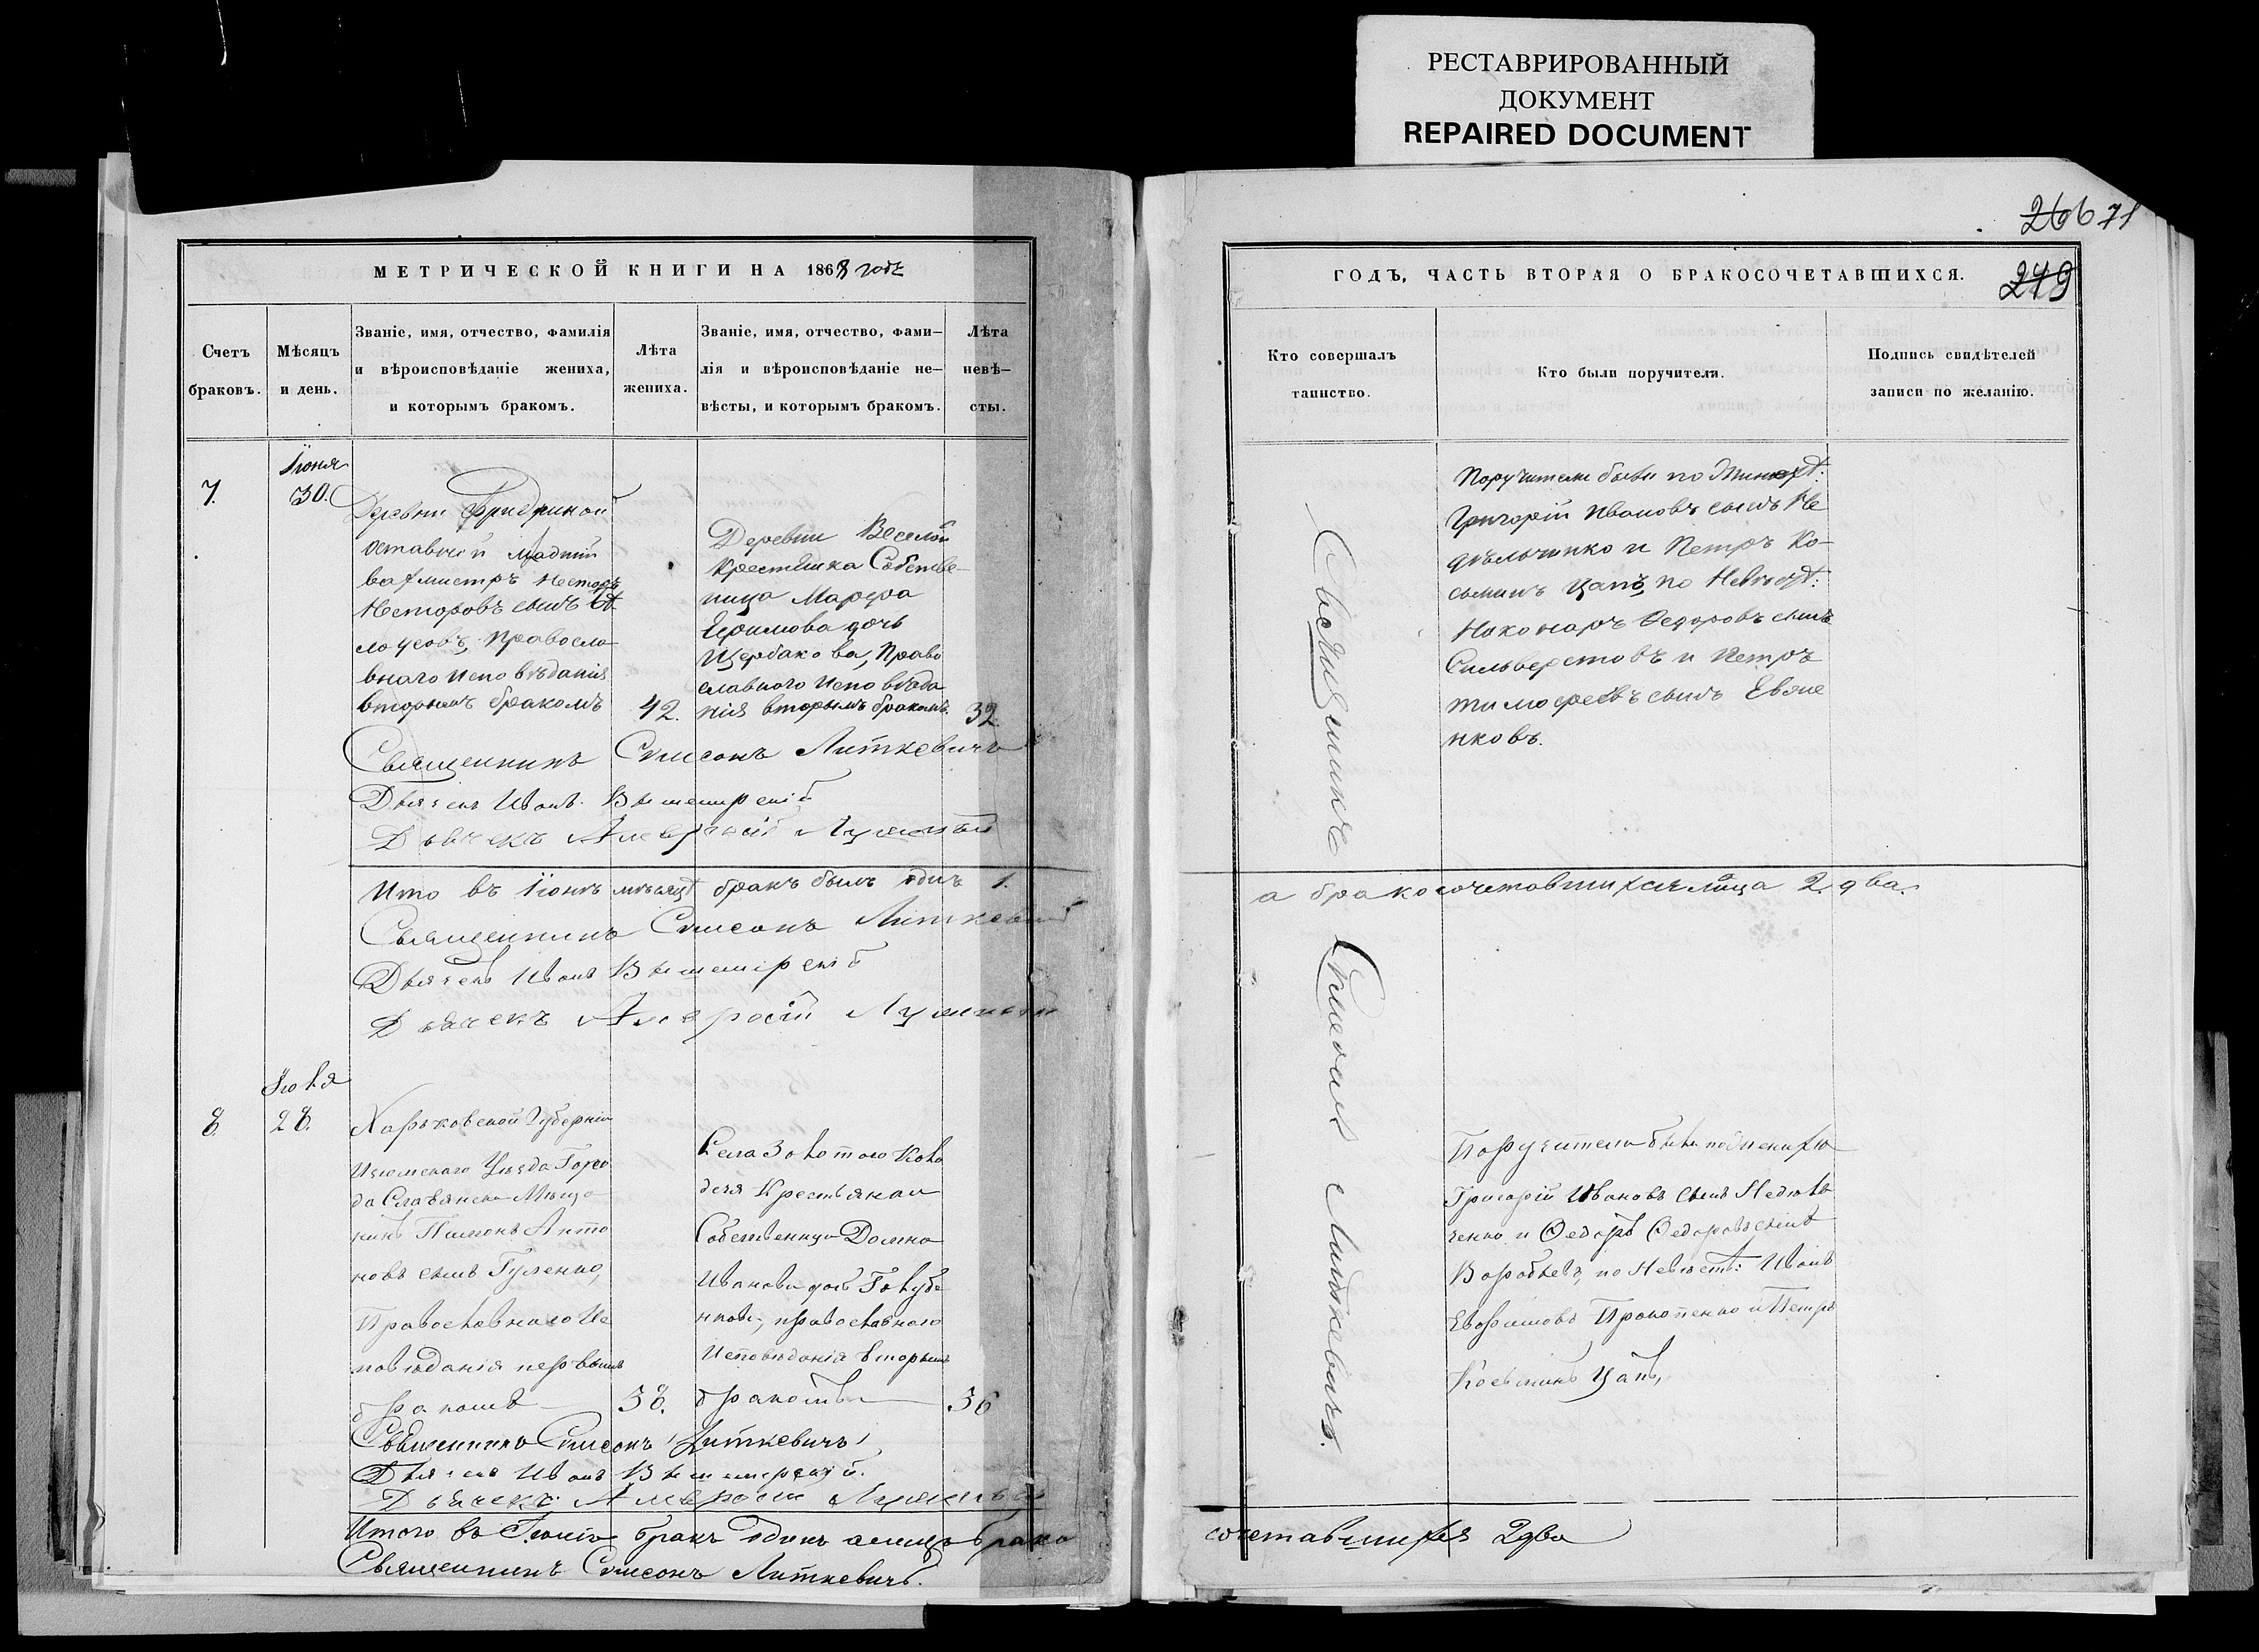 РЕСТАВРИРОВАННЫЙ
ДОКУМЕНТ
REPAIRED DOCUMENT
МЕТРИЧЕСКОЙ КНИГИ НА 1868 годъ
Счетъ
браковъ.
Мѣсяцъ
и день.
Званіе, имя, отчество, фамилія
и вѣроисповѣданіе жениха,
и которымъ бракомъ.
Лѣта
жениха.
Званіе, имя, отчество, фами-
лія и вѣроисповѣданіе не-
вѣсты, и которымъ бракомъ.
Лѣта
невѣ-
сты.
7.
Іюня
30.
Деревни
отставной младшій
вахмистръ Несторъ
Несторовъ сынъ Бѣ
лоусовъ, Правосла
внаго Исповѣданія
вторымъ бракомъ
42.
Деревни Веселой
Крестьянка Собстве-
ница Марфа
Ефимова дочь
Щербакова, Право
славнаго Исповѣда
нія вторымъ бракомъ.
32
Священникъ Симеонъ Литкевичъ
Дьячекъ Иванъ
Дьячекъ Амвросій
Ито въ Іюнѣ мѣсяцѣ бракъ былъ одинъ 1.
Священникъ Симеонъ Литкевичъ
Дьячекъ Иванъ
Дьячекъ Амвросій
8.
Іюля
28.
Харьковской Губерніи
Изюмскаго Уѣзда Горо
да Славянска Мѣща
нинъ Пименъ Анто
новъ сынъ Гуленко,
Православнаго Ис
повѣданія первымъ
бракомъ
38.
Села Золотого Коло
дезя Крестьянка
Собственица Домна
Иванова дочь Голубе
нкова, православнаго
Исповѣданія вторымъ
бракомъ
36
Священникъ Симеонъ Литкевичъ
Дьячекъ Иванъ
Дьячекъ Амвросій
Итого въ бракъ одинъ а лицъ брако
Священникъ Симеонъ Литкевичъ.
266 71
249
ГОДЪ, ЧАСТЬ ВТОРАЯ О БРАКОСОЧЕТАВШИХСЯ.
Кто совершалъ
таинство.
Кто были поручители.
Подпись свидѣтелей
записи по желанію.
Священникъ Симеонъ Литкевичъ.
Поручители были по
Григорій Ивановъ сынъ Не
дѣльченко и Петръ Ко-
сьминъ Цапъ, по Невѣстѣ:
Никаноръ Ѳедоровъ сынъ
Сильверстовъ и Петръ
Тимофеевъ сынъ Евпне
нковъ.
а бракосочетавшихся лица 2 два.
Поручители были по Жениху
Григорій Ивановъ сынъ Недѣль
ченко и Ѳедоръ Ѳедоровъ сынъ
Воробьевъ, по Невѣстѣ: Иванъ
Евфимовъ Прокопенко и Петръ
Косьминъ Цапъ,
сочетавшихся 2 два